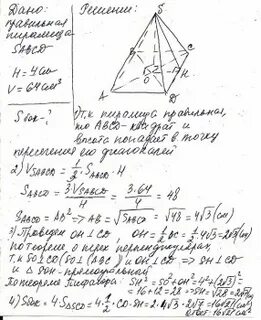 Дано:
правильная
пирамида
SABCD
H = 4см
V = 64см³
Sбок-?
Решение:
S
B
C
O
H
A
D
1) Т.к пирамида правильная,
то ABCD-квадрат и
высота попадает в точку
пересечения его диагоналей
2) VSABCD = 1/3 · SABCD · H
SABCD = 3·VSABCD / H = 3·64 / 4 = 48
SABCD = AD² => AB = √SABCD = √48 = 4√3 (см)
3) Проведем OH ⊥ CD OH = 1/2 BC = 1/2 4√3 = 2√3(см)
по теореме о трех перпендикулярах,
т.к SO⊥CD (SO⊥(ABC)) и OH⊥CD => SH⊥CD
и △SOH-прямоугольный
По теореме Пифагора: SH² = SO²+OH² = 4²+(2√3)² =
= 16+12 = 28 => SH = √28 = 2√7(см)
4) Sбок = 4·SΔSCD = 4·1/2·CD·SH = 2·4√3·2√7 = 16√21 (см²)
Ответ: 16√21 см²